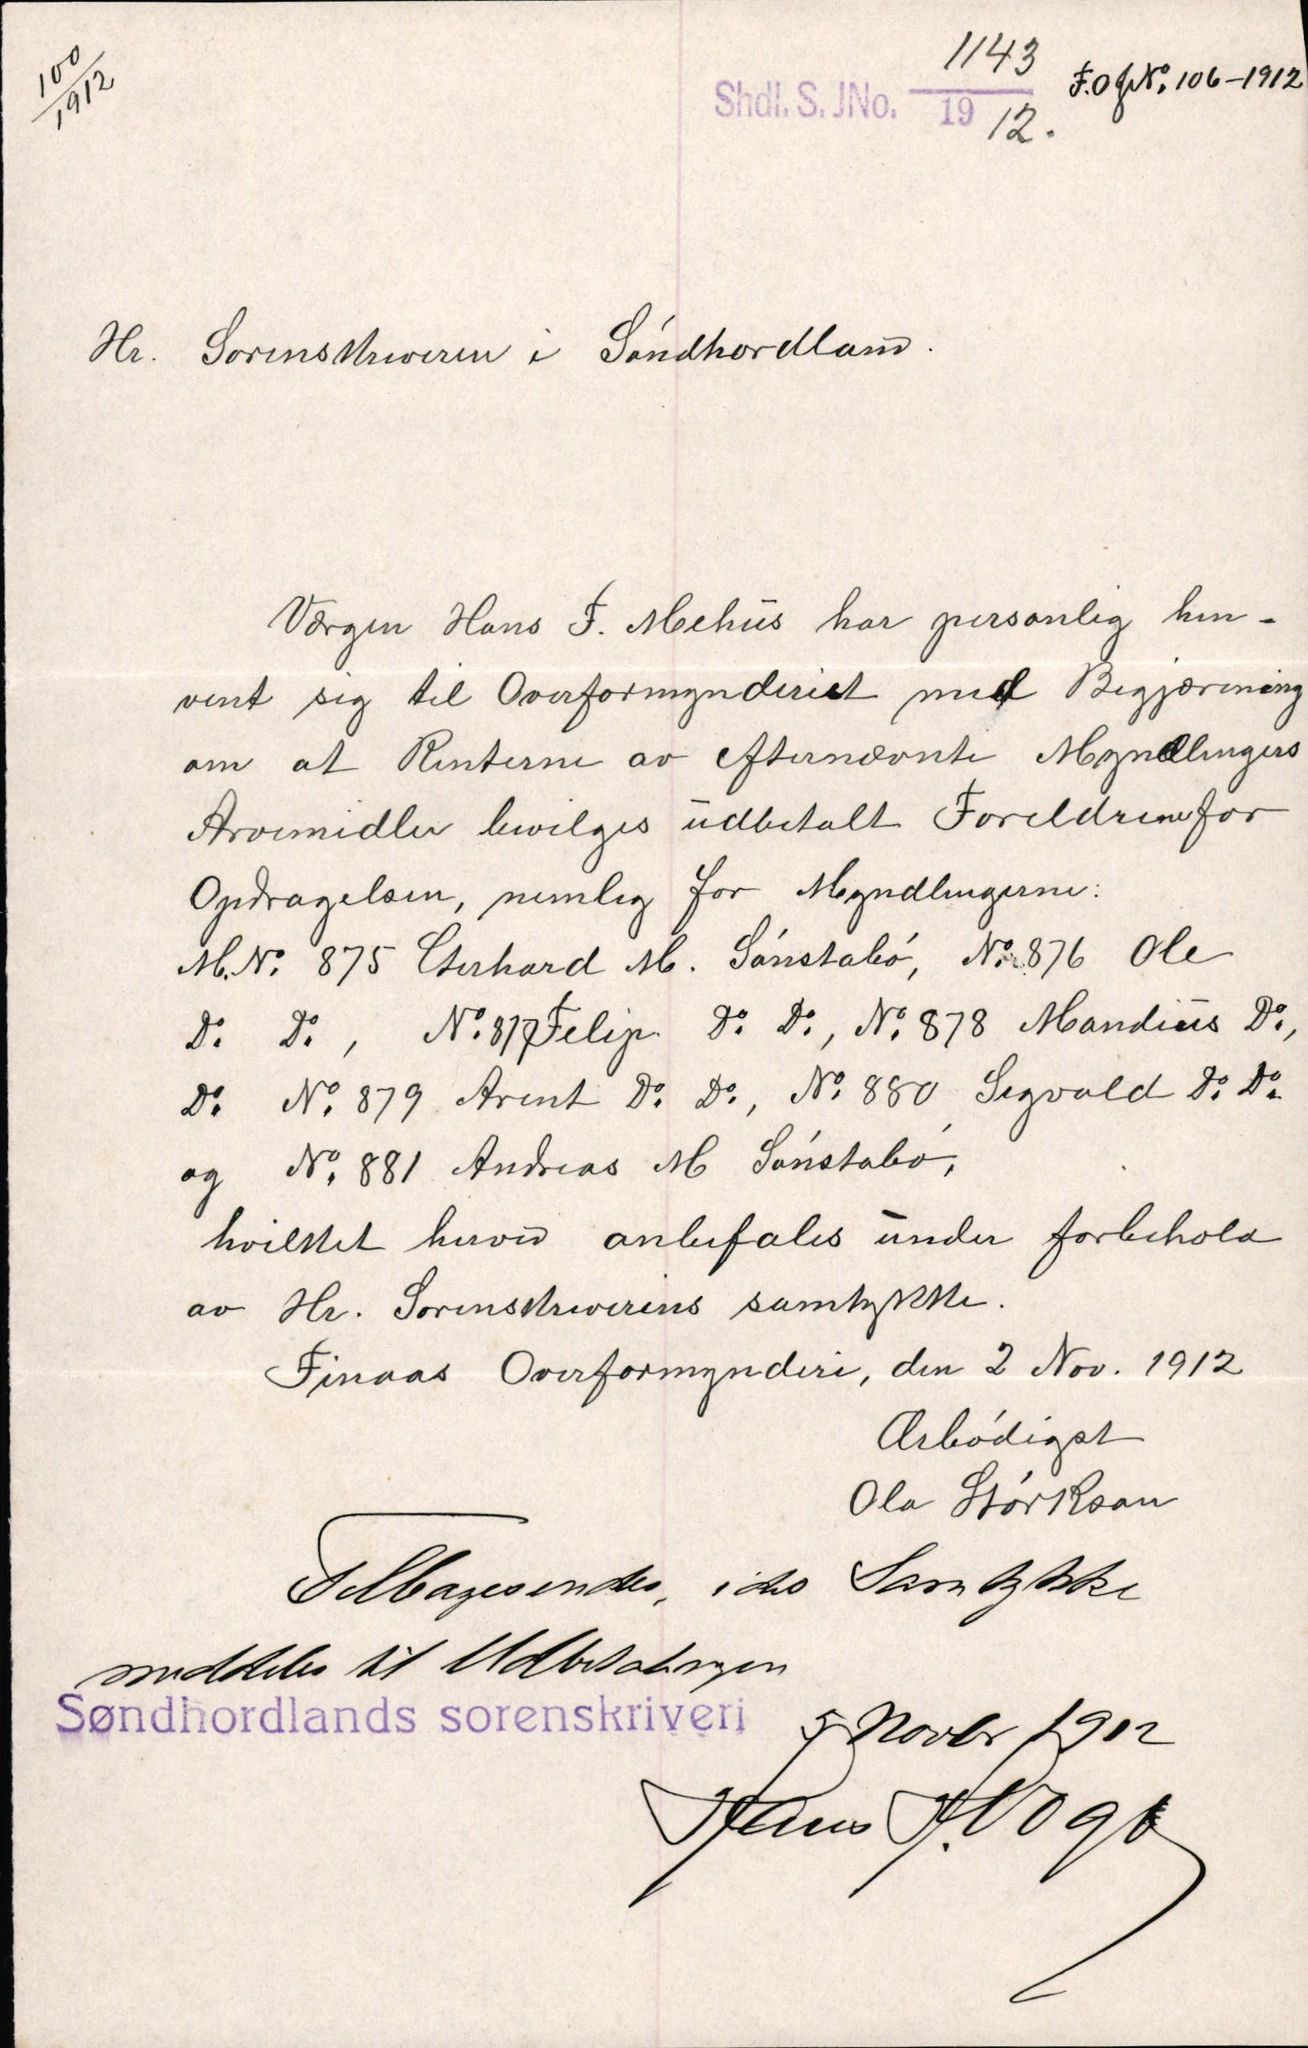 100
1912
1143
Shdl. S. JNo. 19 12.
F.Of No. 106-1912
Hr. Sorenskriveren i Söndhordland.
Værgen Hans F. Mehus har personlig hen-
vent sig til Overformynderiet med Begjærening
om at Renterne av efternævnte Myndlingers
Arvemidler bevilges udbetalt Foreldrene for
Opdragelsen, nemlig for Myndlingerne:
M.No. 875 Eterhard M. Sönstabö, No. 876 Ole
Do. Do., No. 877 Felip Do. Do., No. 878 Mandius Do.,
Do. No. 879 Arent Do. Do., No. 880 Sigvald Do. Do.
og No. 881 Andreas M Sönstabö,
hvilket herved anbefales under forbehold
av Hr. Sorenskriverens samtykke.
Finaas Overformynderi, den 2 Nov. 1912
Ærbödigst
Ola Störkson
Tilbagesendes, idet Samtykke
meddeles til Udbetalingen
Søndhordlands sorenskriveri 5 Novbr 1912
Hans F. Vogt